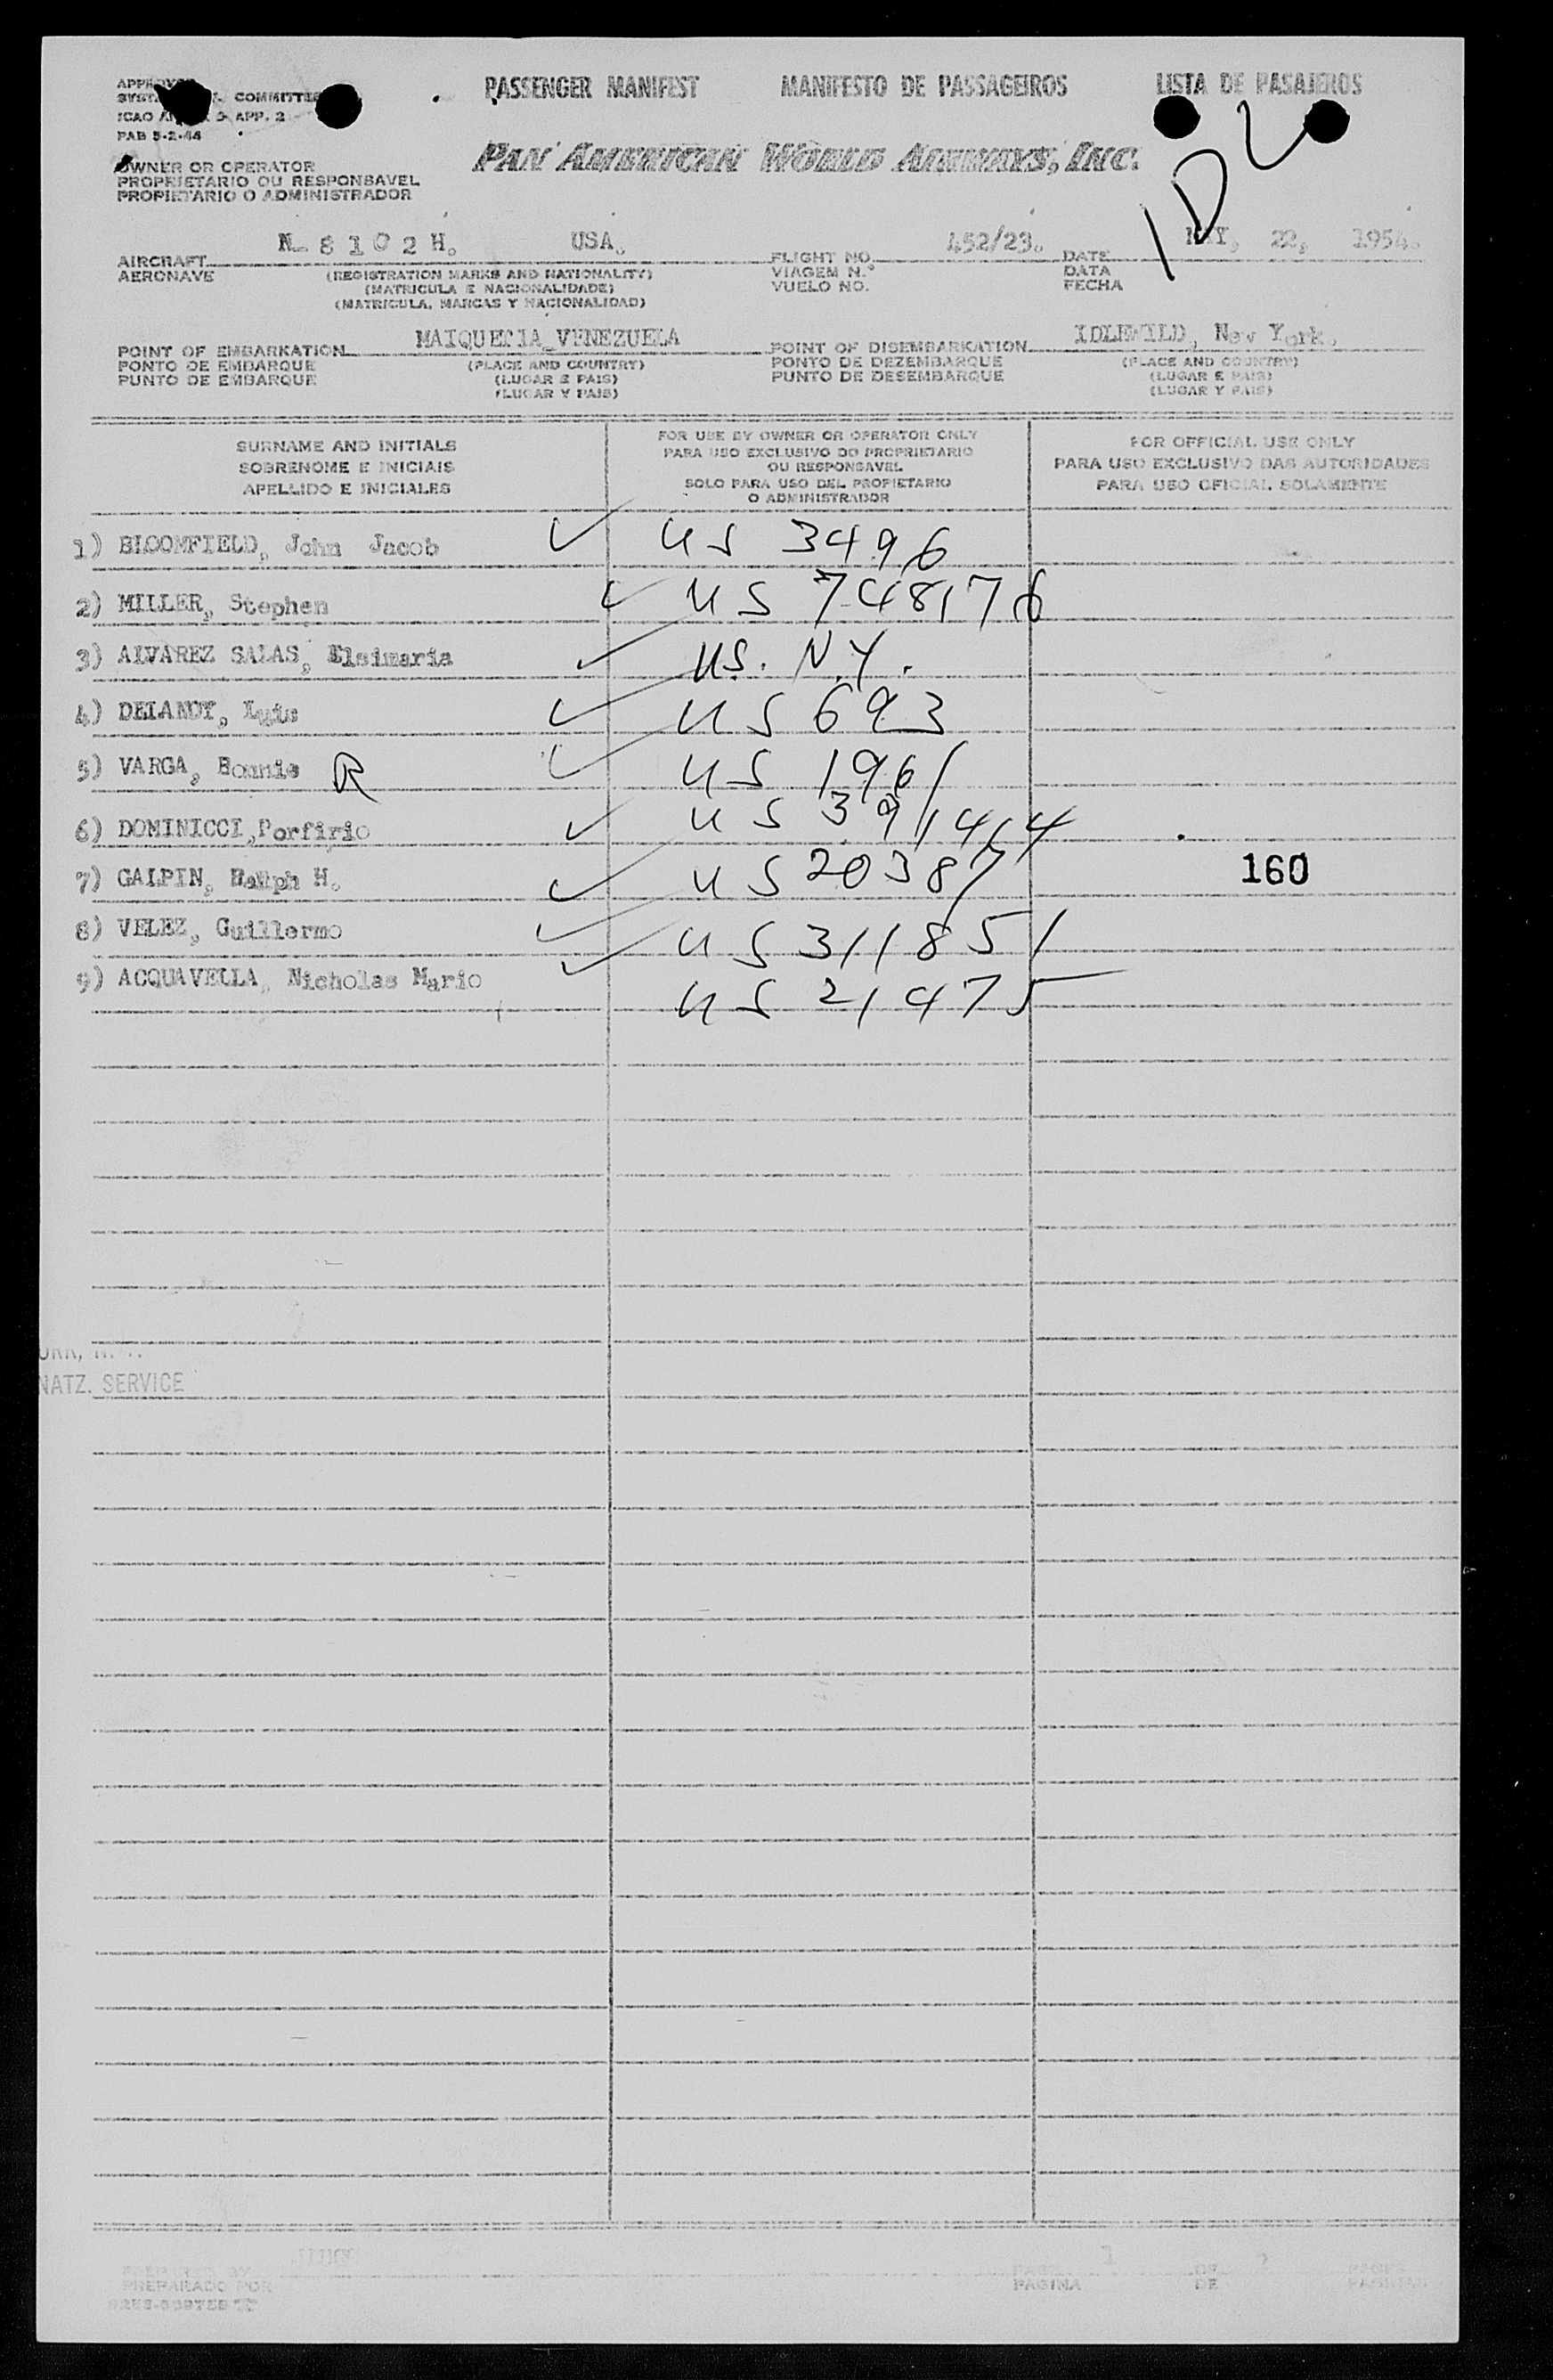 PASSENGER MANIFEST MANIFESTO DE PASSAGEIROS LISTA DE PASAJEROS
COMMITTEE
ICAO APP. 2
PAB 5-2-44
PAN AMERICAN WORLD AIRWAYS, INC.
OWNER OR OPERATOR
PROPRIETARIO OU RESPONSAVEL
PROPIETARIO O ADMINISTRADOR
N 8102 H. USA. 452/23. MAY, 22, 1954.
AIRCRAFT FLIGHT NO. DATE
AERONAVE (REGISTRATION MARKS AND NATIONALITY) VIAGEM N.º DATA
(MATRICULA E NACIONALIDADE) VUELO NO. FECHA
(MATRICULA, MARCAS Y NACIONALIDAD)
MAIQUETIA VENEZUELA IDLEWILD, New York.
POINT OF EMBARKATION POINT OF DISEMBARKATION
PONTO DE EMBARQUE (PLACE AND COUNTRY) PONTO DE DEZEMBARQUE (PLACE AND COUNTRY)
PUNTO DE EMBARQUE (LUGAR E PAIS) PUNTO DE DESEMBARQUE (LUGAR E PAIS)
(LUGAR Y PAIS) (LUGAR Y PAIS)
SURNAME AND INITIALS
SOBRENOME E INICIAIS
APELLIDO E INICIALES
FOR USE BY OWNER OR OPERATOR ONLY
PARA USO EXCLUSIVO DO PROPRIETARIO
OU RESPONSAVEL
SOLO PARA USO DEL PROPIETARIO
O ADMINISTRADOR
FOR OFFICIAL USE ONLY
PARA USO EXCLUSIVO DAS AUTORIDADES
PARA USO OFICIAL SOLAMENTE
1) BLOOMFIELD, John Jacob US 3496
2) MILLER, Stephen US 748176
3) ALVAREZ SALAS, Elsimaria US. NY.
4) Luis US 693
5) VARGA, Bonnie R US 1961
6) DOMINICCI, Porfirio US 391414
7) GALPIN, Ralph H. US 20387 160
8) VELEZ, Guillermo US 311851
9) ACQUAVELLA, Nicholas Mario US 21475
NATZ. SERVICE
PREPARADO POR
PAGINA 1 DE